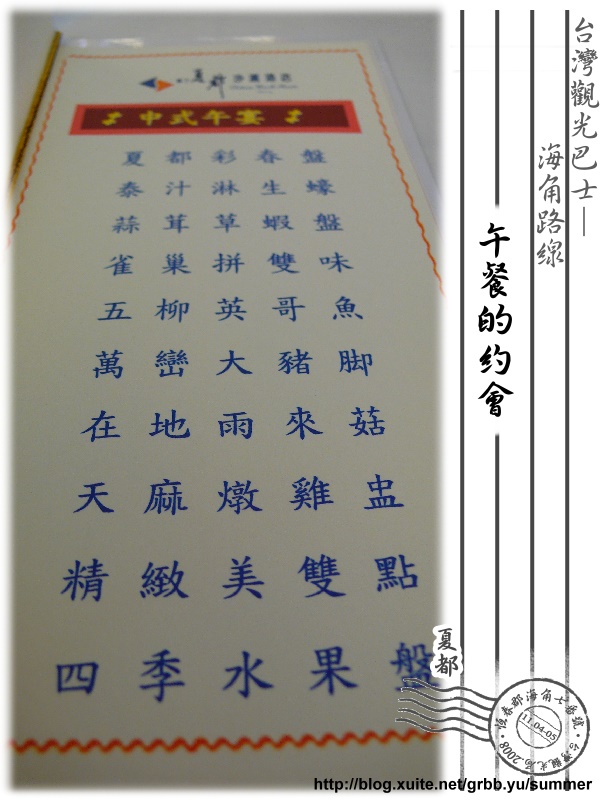 夏都沙灘酒店
中式午宴
夏都彩春盤
泰汁淋生蠔
蒜茸草蝦盤
雀巢拼雙味
五柳英哥魚
萬巒大豬脚
在地雨來菇
天麻燉雞盅
精緻美雙點
四季水果盤
台灣觀光巴士—
海角路線
午餐的約會
夏都
11-04-05
http://blog.xuite.net/grbb.yu/summer